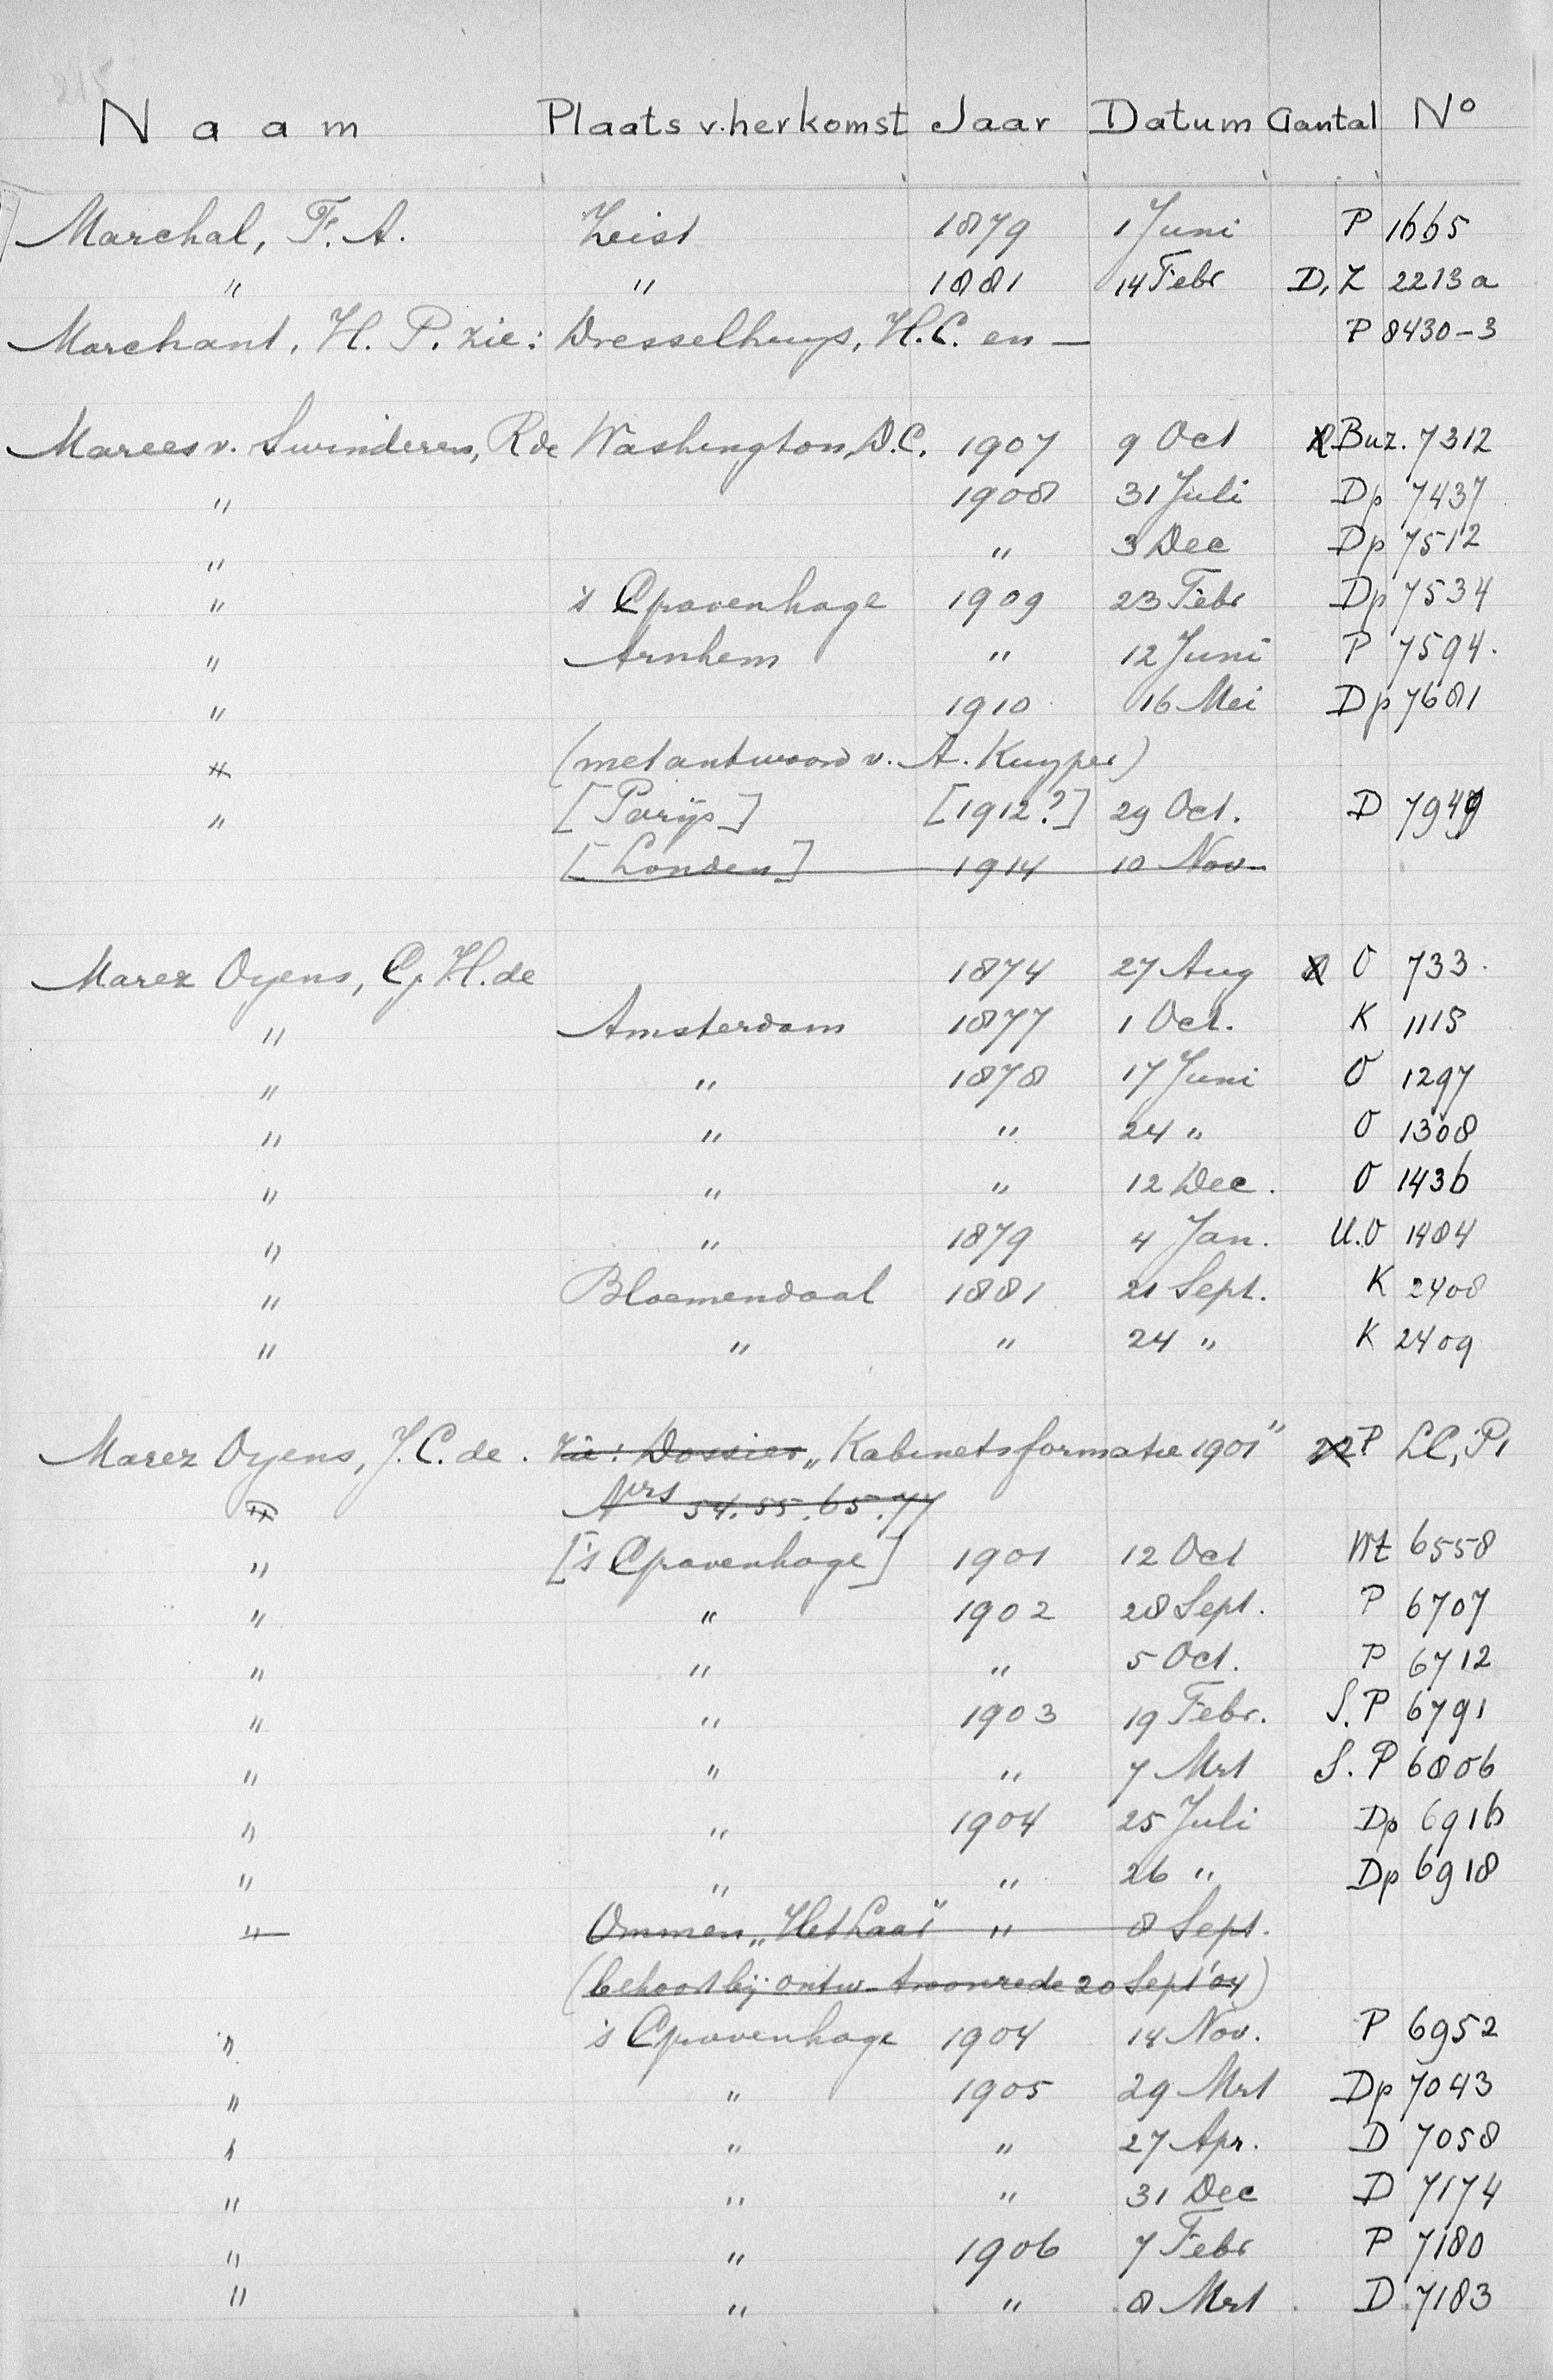 Naam Plaats v. herkomst Jaar Datum Aantal No
Marchal, F. A. Zeist 1879 1 Juni P 1665
" " 1881 14 Febr D, Z 2213a
Marchant, H. P. zie: Dresselhuys, H.C. en — P 8430-3
Marees v. Swinderen, R de Washington D.C. 1907 9 Oct Buz. 7312
" 1908 31 Juli Dp 7437
" " 3 Dec Dp 7512
" 's Gravenhage 1909 23 Febr Dp 7534
" Arnhem " 12 Juni P 7594.
" 1910 16 Mei Dp 7681
" (met antwoord v. A. Kuyper)
" [Parijs] [1912?] 29 Oct. D 7949
[Londen] 1914 10 Nov
Marez Oyens, G. H. de 1874 27 Aug O 733.
" Amsterdam 1877 1 Oct. K 1115
" " 1878 17 Juni O 1297
" " " 24 " O 1308
" " " 12 Dec. O 1436
" " 1879 4 Jan. U.O 1484
" Bloemendaal 1881 21 Sept. K 2408
" " " 24 " K 2409
Marez Oyens, J. C. de. zie: Dossier „Kabinetsformatie 1901" P LC, P1
" Nrs 54. 55. 65. 77
" ['s Gravenhage] 1901 12 Oct Wt 6558
" " 1902 28 Sept. P 6707
" " " 5 Oct. P 6712
" " 1903 19 Febr. S. P 6791
" " " 7 Mrt S. P 6806
" " 1904 25 Juli Dp 6916
" " " 26 " Dp 6918
" Ommen „Het Laar" " 8 Sept.
(behoort bij ontw. troonrede 20 Sept '04)
" 's Gravenhage 1904 14 Nov. P 6952
" " 1905 29 Mrt Dp 7043
" " " 27 Apr. D 7058
" " " 31 Dec D 7174
" " 1906 7 Febr P 7180
" " " 8 Mrt D 7183